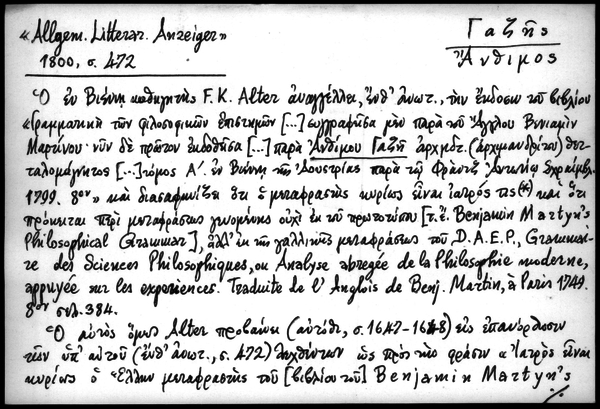 «Allgem. Litterar. Anzeiger»
1800, σ. 472
Γαζῆς
Ἄνθιμος
Ὁ ἐν Βιέννῃ καθηγητὴς F. K. Alter ἀναγγέλλει, ἔνθ' ἀνωτ., τὴν ἔκδοσιν τοῦ βιβλίου
«Γραμματικὴ τῶν φιλοσοφικῶν ἐπιστημῶν [...] συγγραφεῖσα μὲν παρὰ τοῦ Ἄγγλου Βενιαμὶν
Μαρτίνου· νῦν δὲ πρῶτον ἐκδοθεῖσα [...] παρὰ Ἀνθίμου Γαζῆ ἀρχιμδ. (ἀρχιμανδρίτου) Θετ-
ταλομάγνητος [...] τόμος Α΄. ἐν Βιέννῃ τῆς Ἀουστρίας παρὰ τῷ Φράντζ Ἀντωνίῳ Σχραίμβλ.
1799. 8ον» καὶ διασαφηνίζει ὅτι ὁ μεταφραστὴς κυρίως εἶναι ἰατρός τις(*) καὶ ὅτι
πρόκειται περὶ μεταφράσεως γινομένης οὐχὶ ἐκ τοῦ πρωτοτύπου [τ. ἔ. Benjamin Martyn's
Philosophical Grammar], ἀλλ' ἐκ τῆς γαλλικῆς μεταφράσεως τοῦ „D.A.E.P., Grammai-
re des Sciences Philosophiques, ou Analyse abregée de la Philosophie moderne,
appuyée sur les experiences. Traduite de l' Anglois de Benj. Martin, à Paris 1749.
8ον σελ. 384.
Ὁ αὐτὸς ὅμως Alter προβαίνει (αὐτόθι, σ. 1647-1648) εἰς ἐπανόρθωσιν
τῶν ὑπ' αὐτοῦ (ἔνθ' ἀνωτ., σ. 472) λεχθέντων ὡς πρὸς τὴν φράσιν «Ἰατρὸς εἶναι
κυρίως ὁ Ἕλλην μεταφραστὴς τοῦ [βιβλίου τοῦ] Benjamin Martyn's